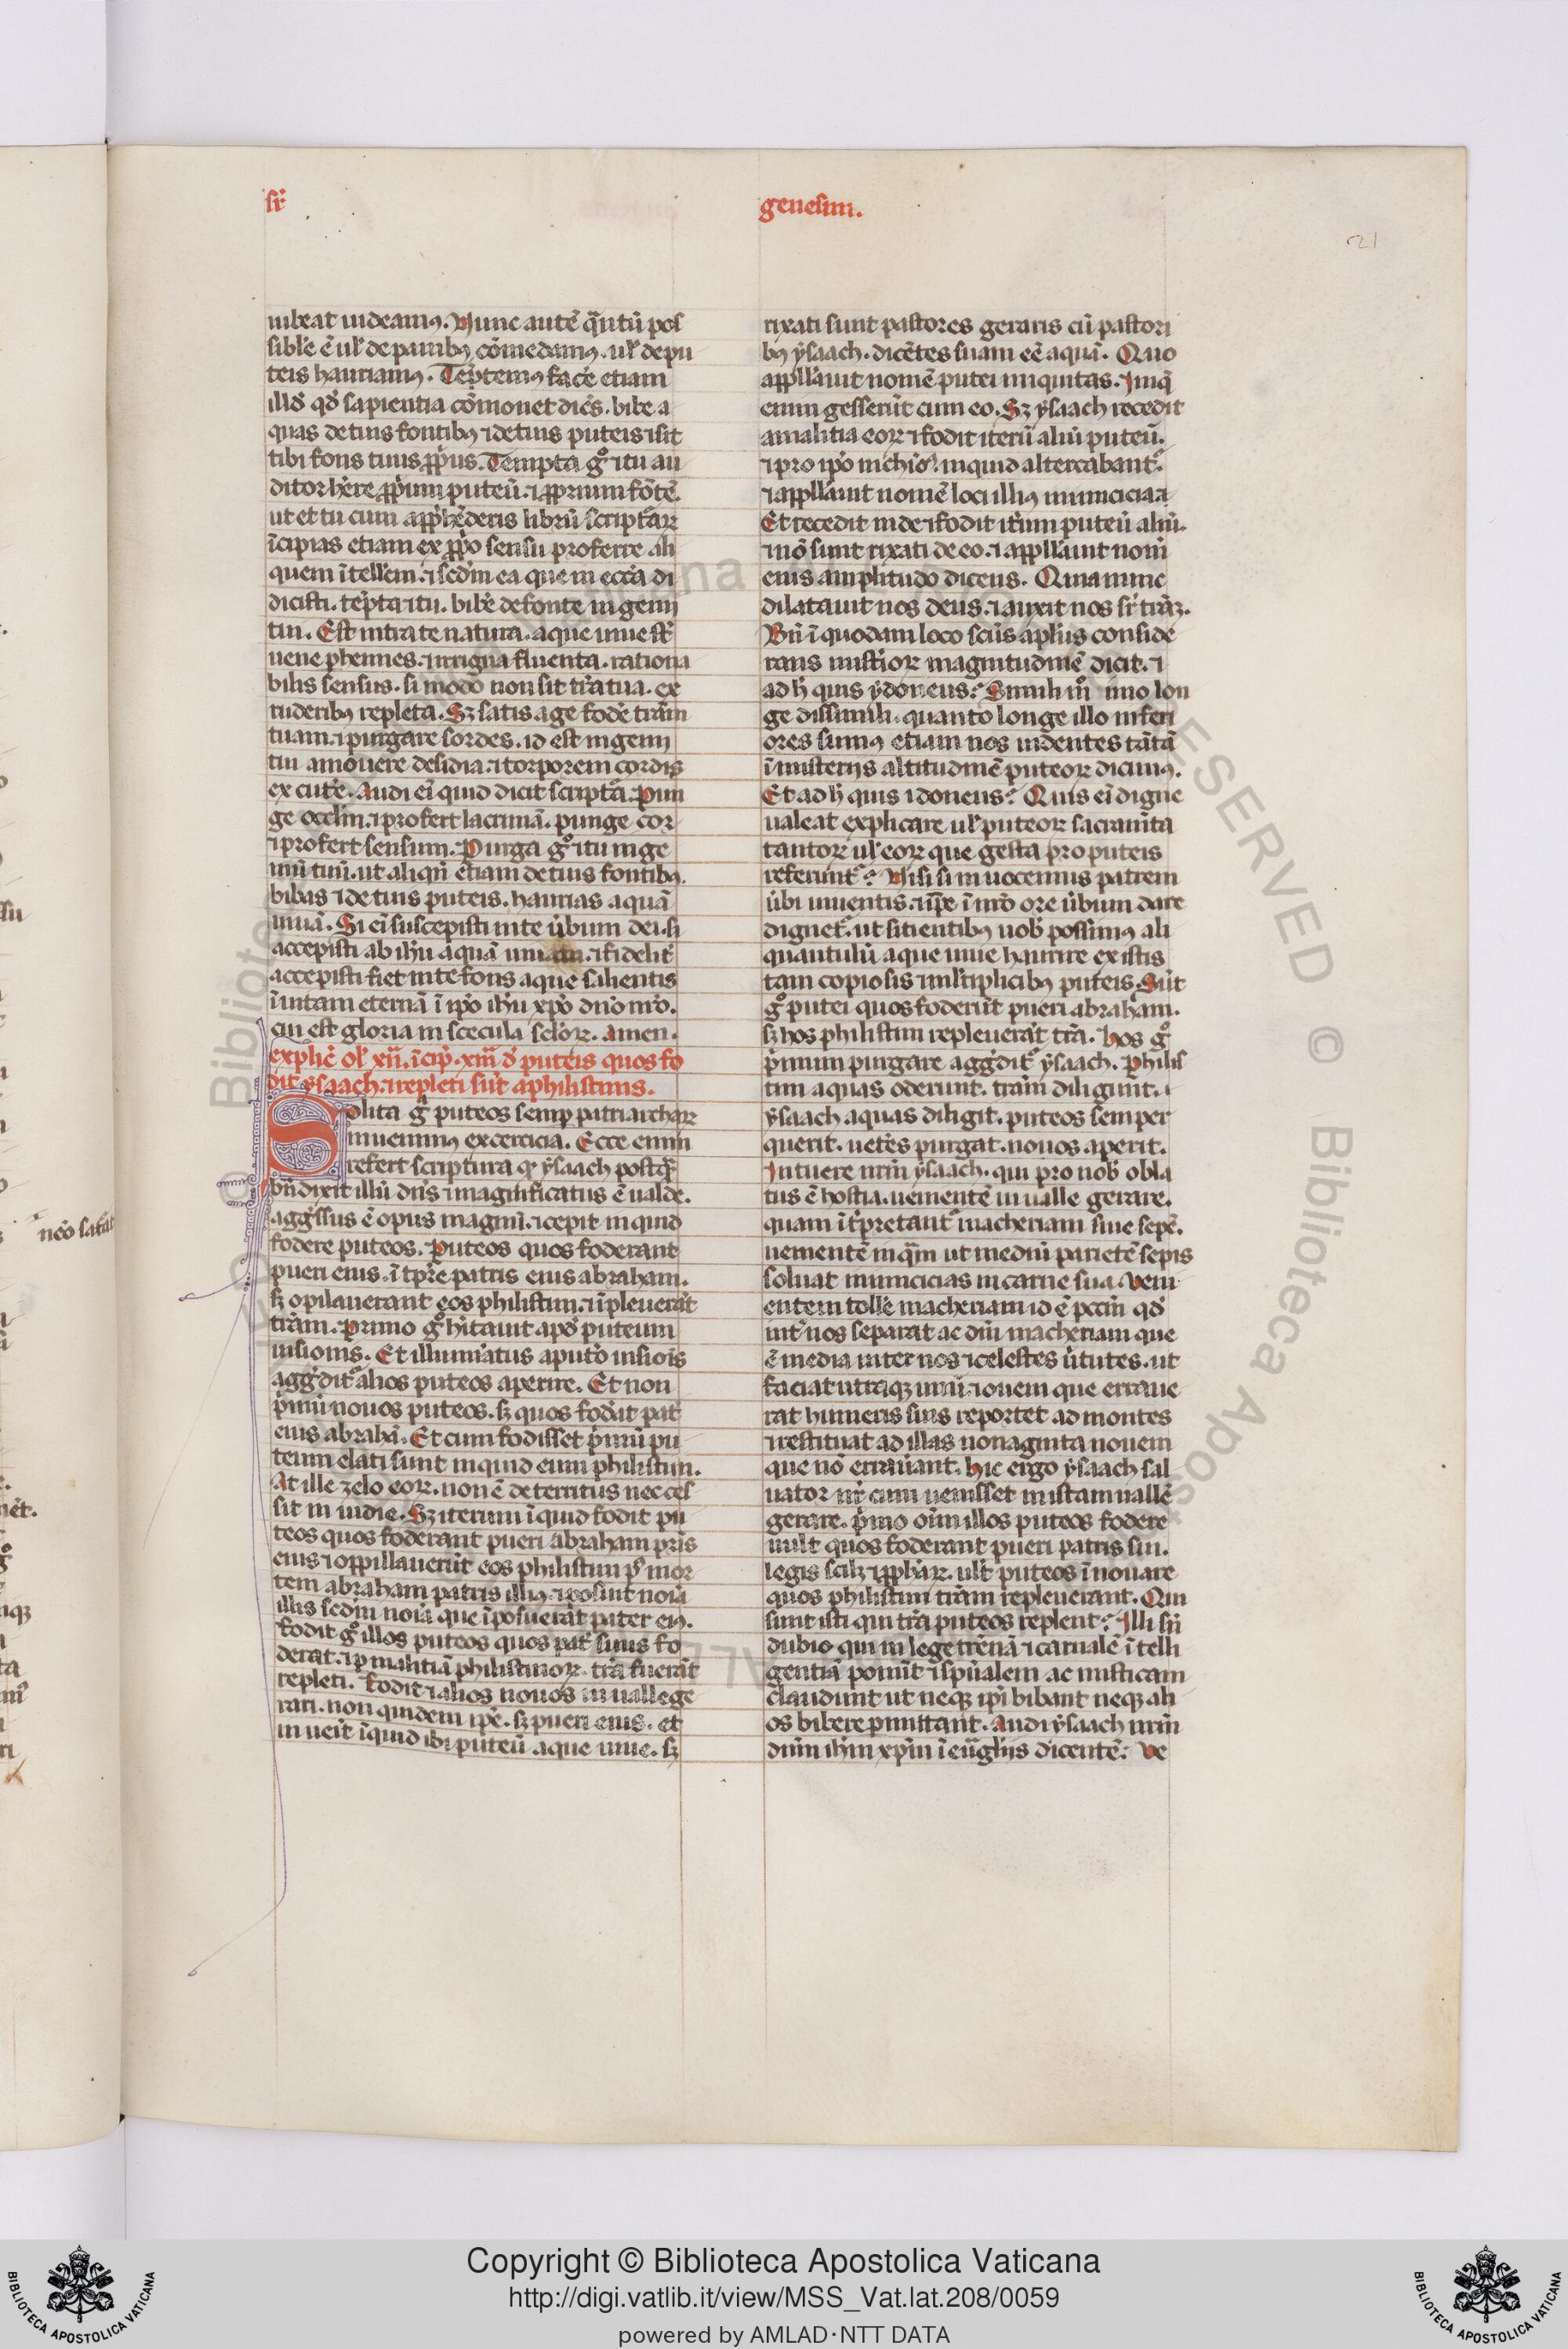 sr̄
genesim.
21
iubeat uideamꝰ. Nunc autē q̄ntū pos
sibile ē ul̓ de panibꝫ comedamꝰ. ul̓ de pu
teis hauriamꝰ. Teptemꝰ facē etiam
illd̓ qd̓ sapientia cōmonet dicēs. bibe a
quas de tuis fontibꝫ ⁊ de tuis puteis ⁊ sit
tibi fons tuus ꝓp̓us. Tempta gͦ ⁊ tu au
ditor h̓ere ꝓp̓ium puteū. ⁊ ꝓprium fōtē.
ut et tu cum app̓hēderis librū scripturaꝝ
īcipias etiam ex ꝓp̓o sensu proferre ali
quem ītellēm. ⁊ sedm ea que in eccā di
dicisti. tēpta ⁊ tu. bibē de fonte ingenij
tui. Est intra te natura. aque uiue st̄
uene phennes. ⁊ irrigua fluenta. rationa
bilis sensus. si modo non sit tr̄a tua. ex
ruderibꝫ repleta. Sꝫ satis age fode tr̄am
tuam. ⁊ purgare sordes. id est ingenij
tui amouere desidia. ⁊ torporem cordis
excutē. Audi ei quid dicit scriptͣ. Pun
ge oculm. ⁊ profert lacrimā. punge cor
⁊ profert sensum. Purga gͦ ⁊ tu inge
niū tuū. ut aliqn̄ etiam de tuis fontibꝫ.
bibas ⁊ de tuis puteis. haurias aquā
uiuā. Si ei suscepisti in te u̓bum dei. si
accepisti ab ih̓u aquā uiuam. ⁊ fidelit̓
accepisti fiet in te fons aque salientis
ī uitam eternā ī ip̓o ih̓u xp̓o dn̄o nr̄o.
cui est gloria in scecula sclōꝝ. Amen.
explic̄ ol̓ xii. īcip̄. xiii d̓ puteis quos fo
dit ysaach. ⁊ repleti sūt a philistinis.
Solita gͣ puteos semp patriarchaꝝ
inuenimꝰ excercicia. Ecce enim
refert scriptura qꝫ ysaach postq̄
bn̄dixit illū dn̄s ⁊ magnificatus ē ualde.
aggressus ē opus magnū. ⁊ cepit inquid
fodere puteos. Puteos quos foderant
pueri eius. ī tp̄re patris eius abraham.
sꝫ opilauerant eos philistim. ⁊ īpleuerāt
tr̄am. Primo gͦ h̓itauit apd̓ puteum
uisionis. Et illumīatus a puto uisiōis
aggreditͬ alios puteos aperire. Et non
p̓mū nouos puteos. sꝫ quos fod̓at pat̓
eius abrahā. Et cum fodisset p̓mū pu
teum elati sunt inquid eum philistim.
At ille zelo eoꝝ. non ē deterritus nec ces
sit inuidie. Sꝫ iterum īquid fodit pu
teos quos foderant pueri abraham pris
eius ⁊ oppillauerūt eos philistim p̓ mor
tem abraham patris illiꝰ. ⁊ posuit noīa
illis sedm noīa que īposuerat pater eiꝰ.
Fodit gͦ illos puteos quos pat̓ suus fo
derat. ⁊ p malitiā philistinoꝝ. tr̄a fuerāt
repleti. Fodit ⁊ alios nouos in ualle ge
rari. non quidem ip̄e. sꝫ pueri eius. et
inuenit īquid ibi puteū aque uiue. sꝫ
rixati sunt pastores geraris cū pastori
bꝫ ysaach. dicētes suam eē aquā. Quo
appll̓auit nomē putei iniquitas. Iniq̄
enim gesserūt cum eo. Sꝫ ysaach recedit
a malitia eoꝝ ⁊ fodit iterū aliū puteū.
⁊ pro ip̓o nichil. inquid altercabantͬ.
⁊ appll̓auit nomē loci illiꝰ inimicicia. ⁊
Et recedit inde ⁊ fodit it̓um puteū aliū.
⁊ nō sunt rixati de eo. ⁊ appll̓auit nom̄
eius amplitudo dicens. Quia nunc
dilatauit nos deus. ⁊ auxit nos sr̄ tr̄aꝫ.
Bn̄ ī quodam loco scūs apl̓us conside
rans mist̓ioꝝ magnitudinē dicit. ⁊
ad h̓ quis ydoneus? Simili mͦ imo lon
ge dissimili. quanto longe illo inferi
ores sumꝰ etiam nos uidentes tātā
ī misterijs altitudinē puteoꝝ dicimꝰ.
Et ad h̓ quis idoneus? Quis ei digne
ualeat explicare ul̓ puteoꝝ sacram̄ta
tantoꝝ ul̓ eoꝝ que gesta pro puteis
referuntͬ? Nisi si inuocemus patrem
u̓bi uiuentis. ⁊ ip̄e ī nr̄o ore u̓bum dare
dignetͬ. ut sitientibꝫ uob̓ possimꝰ ali
quantulū aque uiue haurire ex istis
tam copiosis ⁊ multiplicibꝫ puteis. Sūt
gͦ putei quos foderūt pueri abraham.
sꝫ hos philistim repleuerāt tr̄a. hos gͦ
p̓mum purgare aggreditͬ ysaach. Philis
tim aquas oderunt. tr̄am diligunt. ⁊
ysaach aquas diligit. puteos semper
querit. uet̓es purgat. nouos aperit.
Intuere nr̄m ysaach. qui pro nob̓ obla
tus ē hostia. uenientē in ualle gerare.
quam īt̓pretantͬ maceriam siue sepē.
uenientē inq̄m ut mediū parietē sepis
soluat inimicicias in carne sua. Veni
entem tolle macheriam id ē pccm qd̓
int̓ nos separat ac dm̄ macheriam que
ē media inter nos ⁊ celestes u̓tutes. ut
faciat utraqꝫ unū. ⁊ ouem que erraue
rat humeris suis reportet ad montes
⁊ restituat ad illas nonaginta nouem
que nō errauant. hic ergo ysaach sal
uator nr̄ cum uenisset in istam uallē
gerare. p̓mo oīm illos puteos fodere
uult quos foderant pueri patris sui.
legis scilꝫ ⁊ ꝓphaꝝ. ul̓t puteos īnouare
quos philistim tr̄am repleuerant. Qui
sunt isti qui tr̄a puteos replent? Illi sn̄
dubio qui in lege tr̄enā ⁊ carnalē ītelli
gentiā ponūt ⁊ spūalem ac misticam
claudunt ut neqꝫ ipi bibant neqꝫ ali
os bibere pmittant. Audi ysaach nr̄m
dn̄m ih̓m xp̄m ī eu̓glijs dicentē. Ve
Copyright © Biblioteca Apostolica Vaticana
http://digi.vatlib.it/view/MSS_Vat.lat.208/0059
powered by AMLAD·NTT DATA
BIBLIOTECA APOSTOLICA VATICANA
BIBLIOTECA APOSTOLICA VATICANA